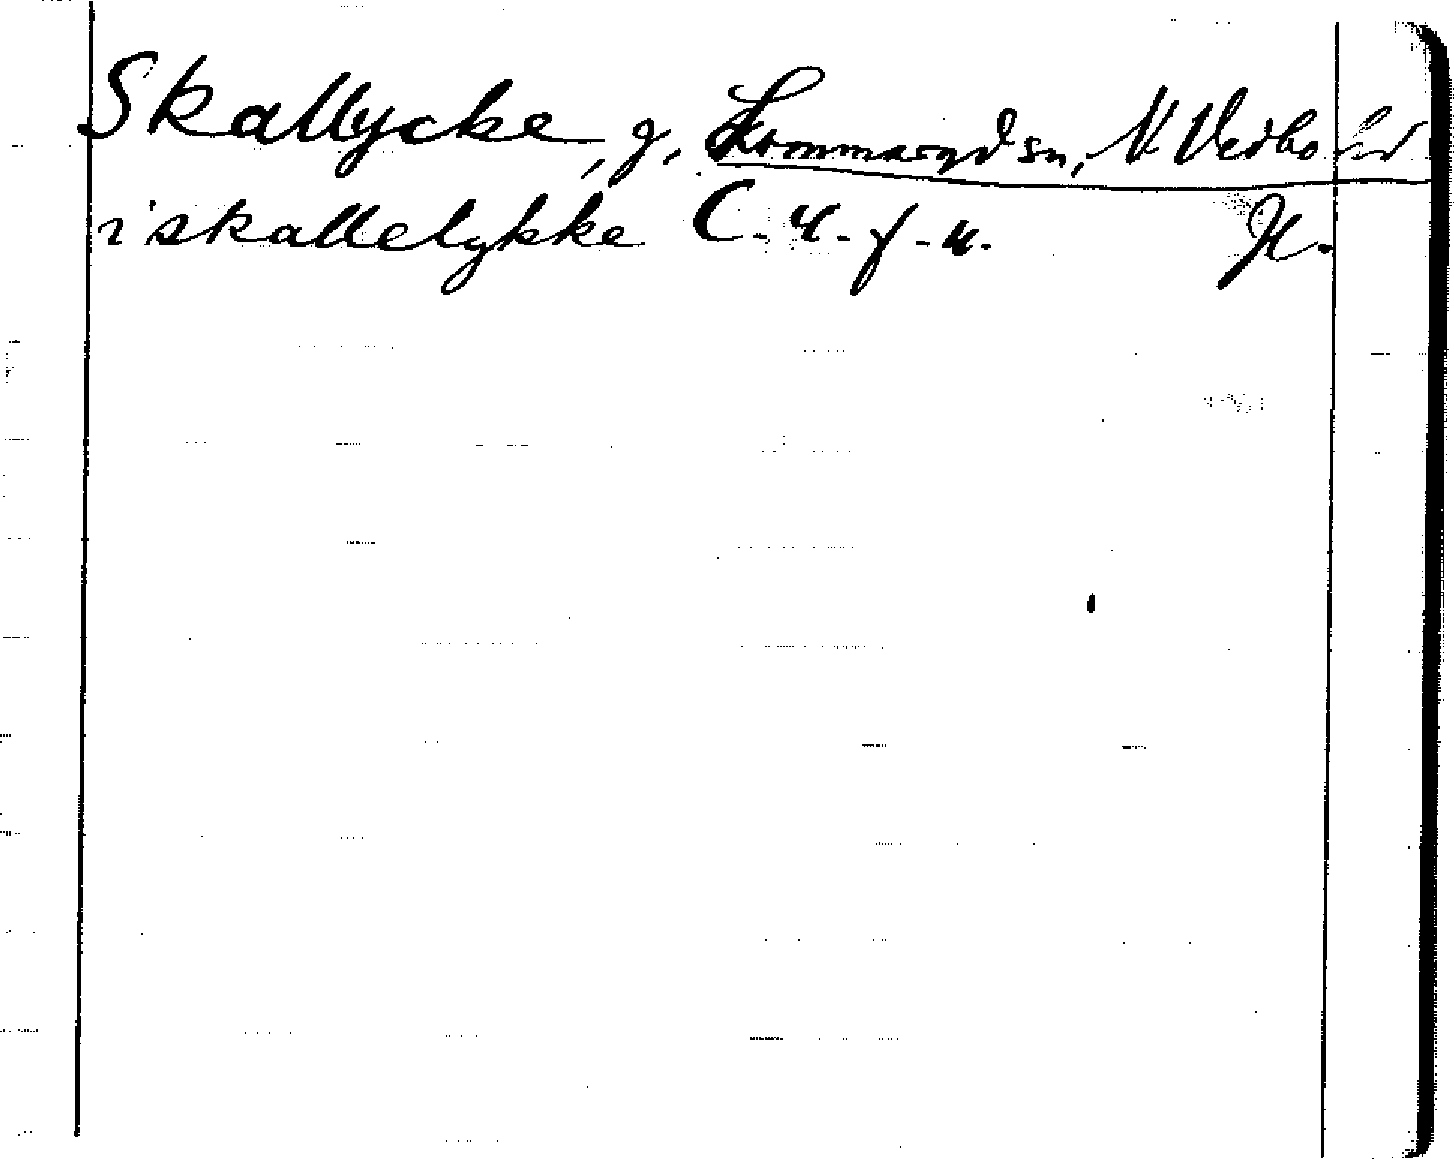 Skallycke, g, Lommaryd sn, N Vedbo hd
i skallelykke C. 4. f. 4. Jk.